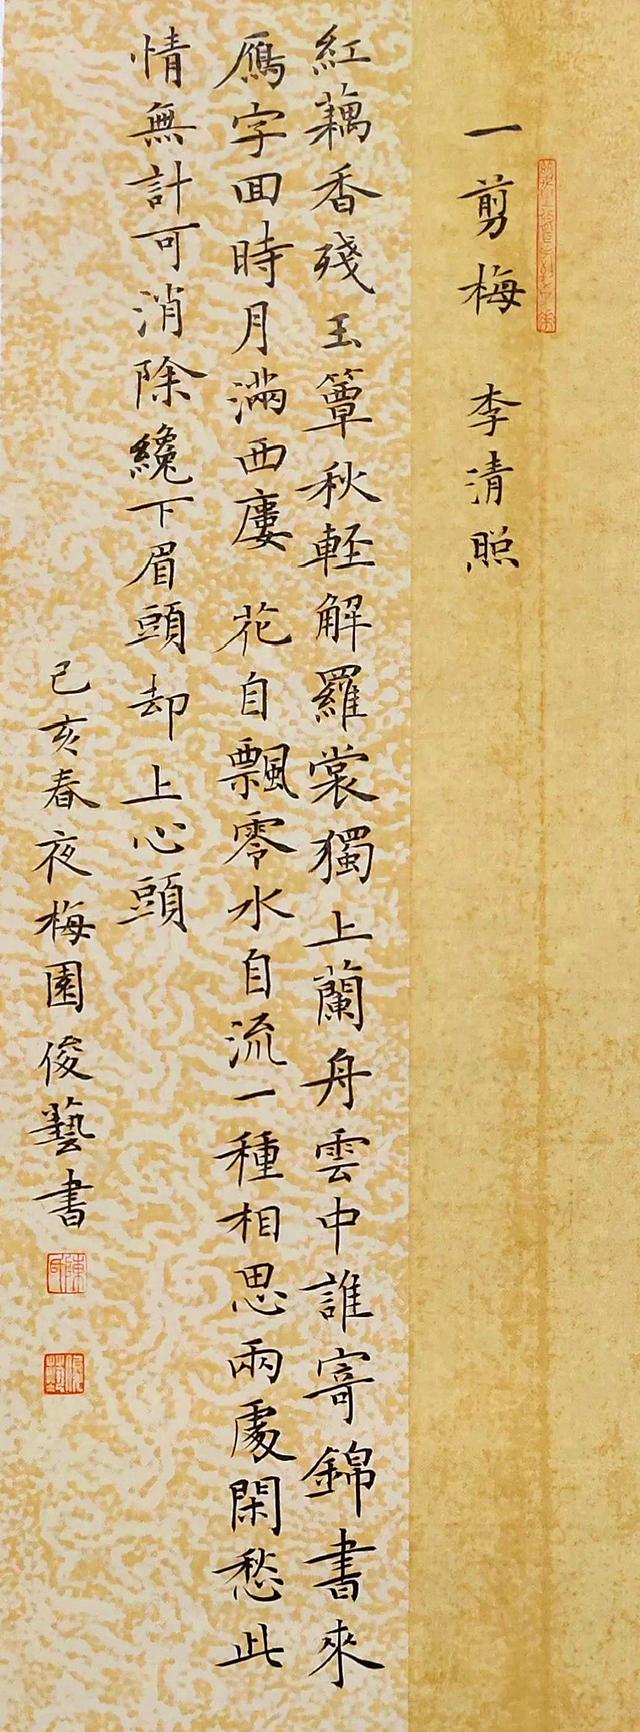 一剪梅 李清照
紅藕香殘玉簟秋輕解羅裳獨上蘭舟雲中誰寄錦書來
鴈字回時月滿西廔 花自飄零水自流一種相思兩處閑愁此
情無計可消除纔下眉頭却上心頭
己亥春夜梅園俊藝書